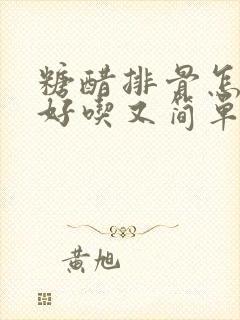 糖醋排骨怎
好喫又简单
黄旭